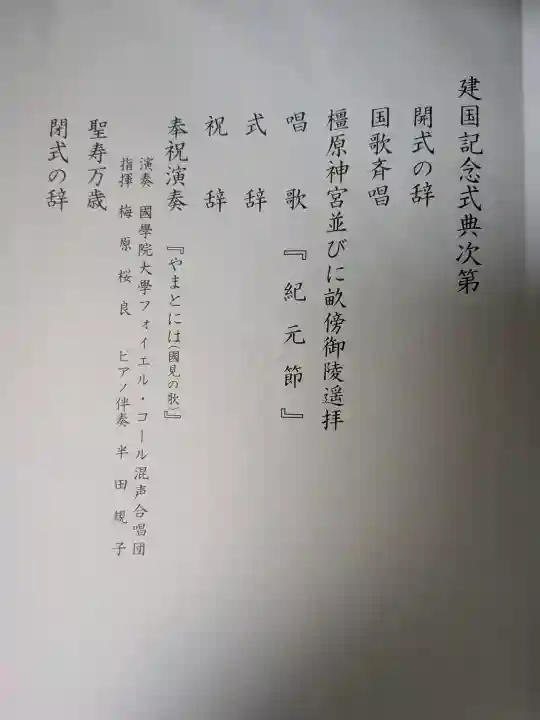 建国記念式典次第
開式の辞
国歌斉唱
橿原神宮並びに畝傍御陵遥拝
唱歌『紀元節』
式辞
祝辞
奉祝演奏『やまとには(國見の歌)』
演奏 國學院大學フォイエル・コール混声合唱団
指揮 梅原桜良 ピアノ伴奏 半田規子
聖寿万歳
閉式の辞